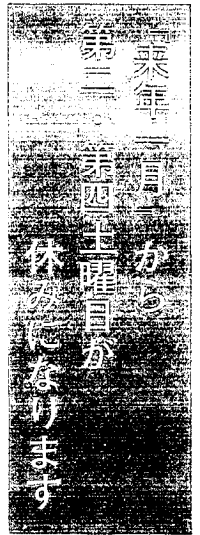 「来年一月」から
第二、第四土曜日が
休みになります